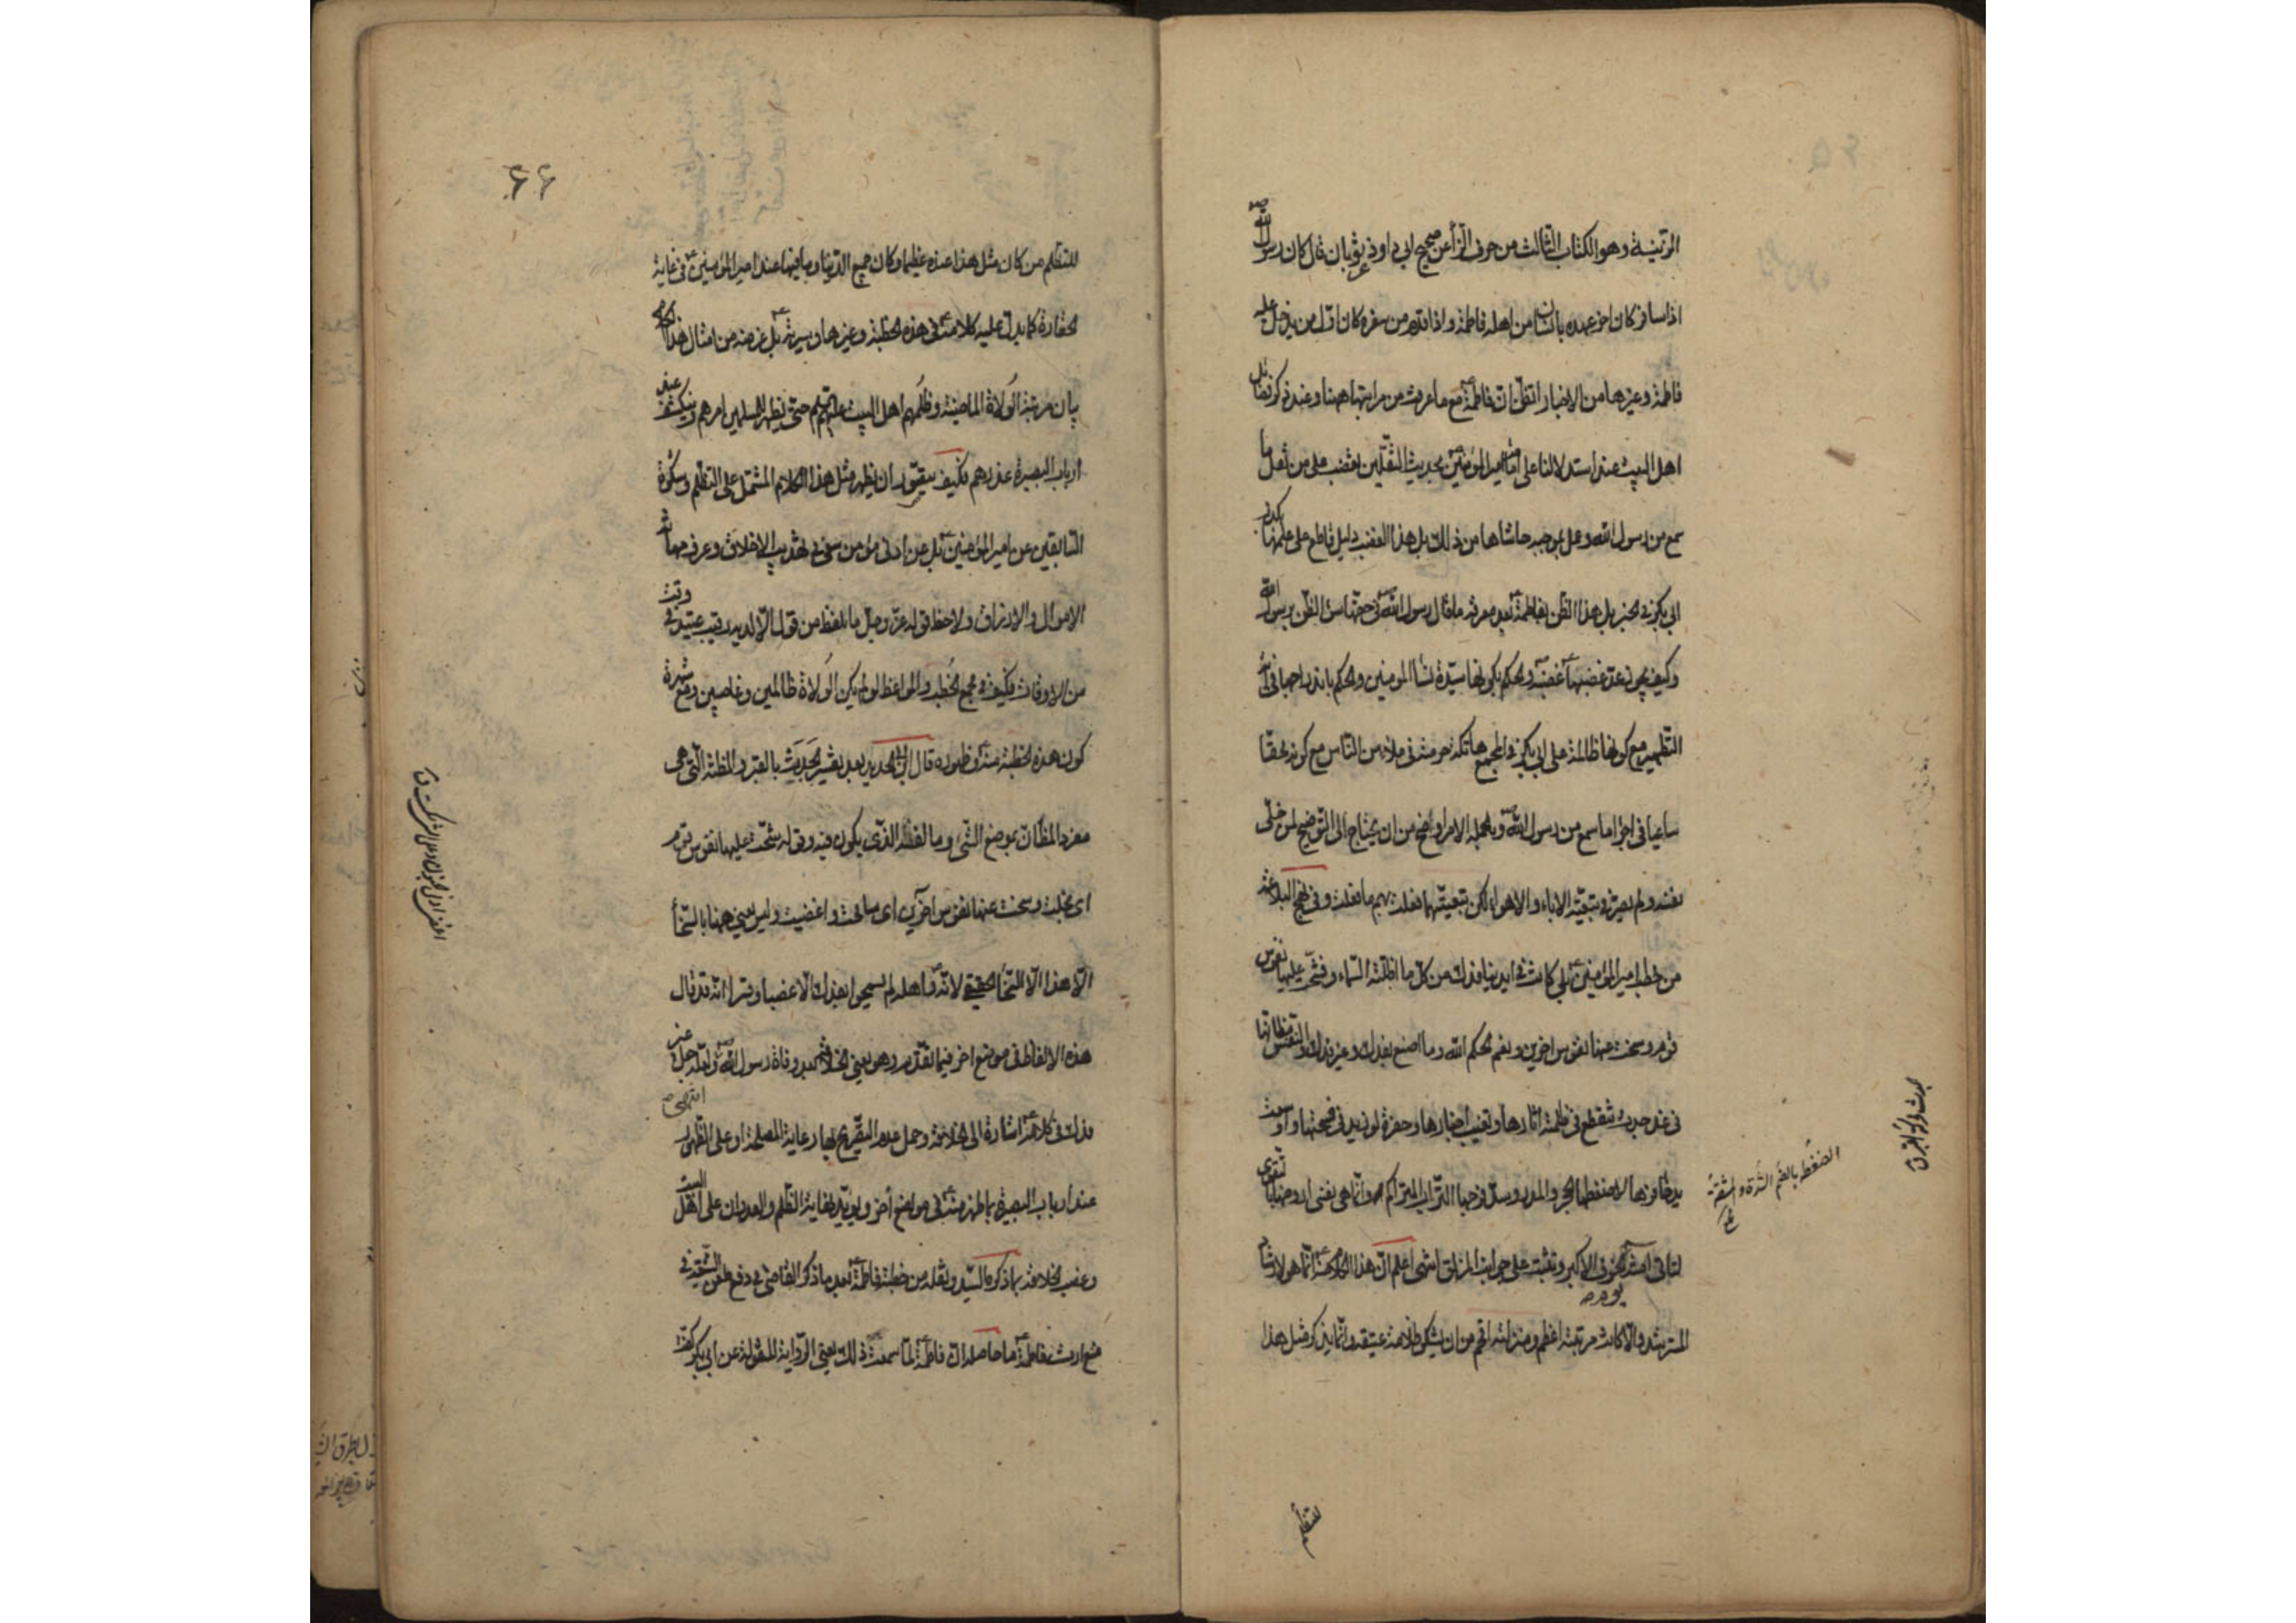 المرتبة وهو الكتاب الثالث من حرف الزا عن صحيح ابي داود عن ثوبان قال كان رسول الله ص
اذا سافر كان اخر عهده بانسان من اهله فاطمة واذا قدم من سفره كان اول من يدخل عليه
فاطمة وغيرها من الاخبار اتظن ان فاطمة ع مع ما عرفت من مراتبها ههنا وعند ذكر فضايل
اهل البيت عند استدلالنا على امامة امير المؤمنين بحديث الثقلين تغضب على من نقل ما
سمع من رسول الله وعمل بموجبه حاشاها من ذلك بل هذا الغضب دليل قاطع على علمها بكذب
ابي بكر في الخبر بل هذا الظن بفاطمة ع بعد معرفة ما قال رسول الله ص في حقها سوء الظن برسول الله
وكيف يجوز عد غضبها ع غضبه والحكم بكونها سيدة نساء المؤمنين والحكم باندراجها في اية
التطهير مع كونها ظالمة على ابي بكر في المجمع هاتكة حرمته في ملاء من الناس مع كونه محقا
ساعيا في اجراء ما سمع من رسول الله ص وبالجملة الامر اوضح من ان يحتاج الى التوضيح لمن خلى
نفسه ولم يعرضه تبعية الاباء والاهواء لكن تبعيتهما فعلت بهم ما فعلت وفي نهج البلاغة
من خطب امير المؤمنين ع بلى كانت في ايدينا فدك من كل ما اظلته السماء فشحت عليها نفوس
قوم وسخت عنها نفوس اخرين ونعم الحكم الله وما اصنع بفدك وغير فدك والنفس مظانها
في غد جدث تنقطع في ظلمته اثارها وتغيب اخبارها وحفرة لو زيد في فسحتها واوسعت
يدا حافرها لاضغطها الحجر والمدر وسد فرجها التراب المتراكم وانما هي نفسي اروضها بالتقوى
لتاتي امنة يوم الخوف الاكبر وتثبت على جوانب المزلق انتهى اعلم ان هذا الكلام منه ع انما هو لارشاد
المسترشد والا كانت مرتبته اعظم ومنزلته اقم من ان يشكي ظلامة عتيقة وانما يذكر مثل هذا
الضغطة بالضم الشدة والمشقة
للتظلم
٦٦
للتظلم من كان مثل هذا عنده عظيما وكان جميع الدنيا وما فيها عند امير المؤمنين ع في غاية
الحقارة كما يدل عليه كلامه ع في هذه الخطبة وغيرها وسيرته بل غرضه من امثال هذا الكلام
بيان مرتبة الولاة الماضية وظلمهم اهل البيت عليهم السلم حتى يظهر للمسلمين امرهم وينكشف عند
ارباب البصيرة غدرهم فكيف يتصور ان يظهر مثل هذا الكلام المشتمل على التظلم وشكوة
السابقين عن امير المؤمنين ع بل عن ادنى مؤمن سعى في تهذيب الاخلاق وعرف مهانة
الاموال والارزاق ولاحظ قوله عز وجل ما يلفظ من قول الا لديه رقيب عتيد في وقت
من الاوقات فكيف في مجمع الخطب والمواعظ لو لم يكن الولاة ظالمين وغاصبين ومع شهرة
كون هذه الخطبة منه ع وظهوره قال ابن ابي الحديد بعد تفسير الجدث بالقبر والمظنة التي هي
مفرد المظان بموضع الشئ ومالفه الذي يكون فيه وقوله شحت عليها نفوس قوم
اى بخلت وسخت عنها نفوس آخرين اى سامحت واغضيت وليس يعني ههنا بالسخاء
الا هذا لا السخاء الحقيقي لانه ع واهله لم يسمحوا بفدك الا غصبا وقسرا انه قد قال
هذه الالفاظ في موضع اخر فيما تقدم وهو يعني الخلافة بعد وفاة رسول الله ص ولعله جعل
ذلك في كلامه ع اشارة الى الخلافة وحمل عدم التصريح بها رعاية المصلحة او على الظهور
عند ارباب البصيرة بما ظهر منه ع في مواضع أخر ويؤيد غاية الظلم والعدوان على اهل البيت
وغصب الخلافة بما ذكره السيد ونقله من خطبة فاطمة ع بعد ما ذكر القاضي في دفع طعن الشيعة في
منع ارث فاطمة ع ما حاصله ان فاطمة ع لما سمعت ذلك يعني الرواية المنقولة عن ابي بكر كفت